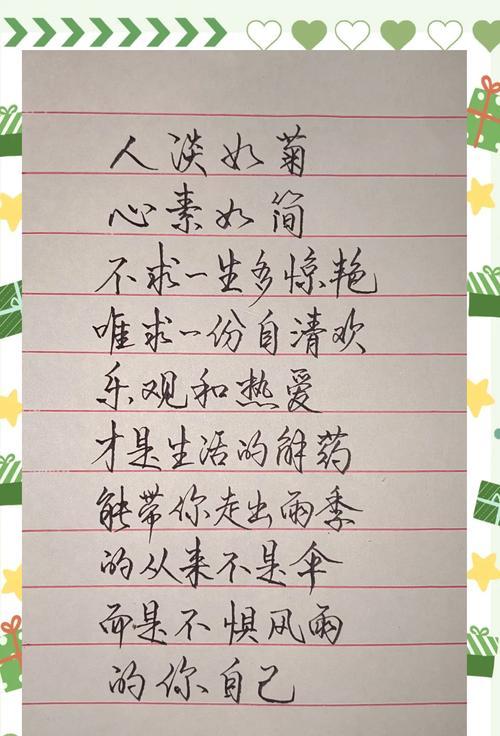 人淡如菊
心素如简
不求一生多惊艳
唯求一份自清欢
乐观和热爱
才是生活的解药
能带你走出雨季
的从来不是伞
而是不惧风雨
的你自己